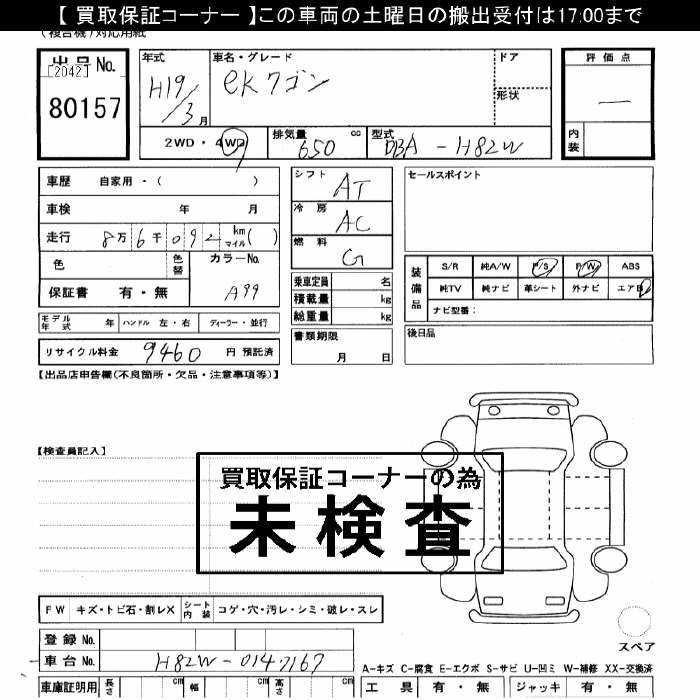 【 買取保証コーナー 】この車両の土曜日の搬出受付は17:00まで
(複合機)対応用紙
出品 No.
[2042]
80157
年式
H19/3月
車名・グレード
eKワゴン
ドア
形状
評価点
—
内装
2WD・4WD
排気量 650 cc
型式 DBA-H82W
車歴 自家用・( )
車検 年 月
走行 8万6千092 km マイル( )
色 色替 カラーNo.
保証書 有・無 A99
シフト AT
冷房 AC
燃料 G
乗車定員 名
積載量 kg
総重量 kg
書類期限
月 日
セールスポイント
装備品
S/R 純A/W P/S P/W ABS
純TV 純ナビ 革シート 外ナビ エアB
ナビ型番:
後日品
モデル年式 年 ハンドル 左・右 ディーラー・並行
リサイクル料金 9460 円 預託済
【出品店申告欄(不良箇所・欠品・注意事項等)】
【検査員記入】
買取保証コーナーの為
未検査
FW キズ・トビ石・割レX シート内装 コゲ・穴・汚レ・シミ・破レ・スレ
登録 No.
車台 No. H82W-0147167
スペア
A-キズ C-腐食 E-エクボ S-サビ U-凹ミ W-補修 XX-交換済
車庫証明用 長さ cm 幅 cm 高さ cm
工具 有・無 ジャッキ 有・無